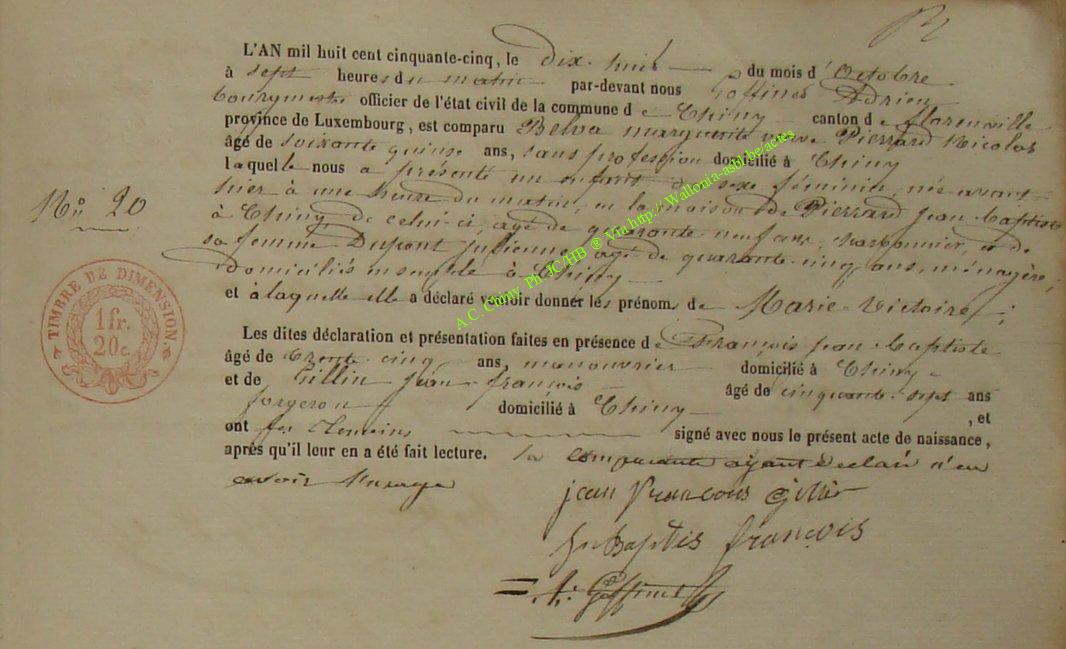 L'AN mil huit cent cinquante-cinq, le dix-huit du mois d'Octobre
à sept heures du matin par-devant nous Goffinet Adrien
bourgmestre officier de l'état civil de la commune de Chiny canton de florenville
province de Luxembourg, est comparu Belva marguerite veuve Pierrard Nicolas
âgé de soixante quinze ans, sans profession domicilié à Chiny
laquelle nous a présenté un enfant de sexe féminin, née avant-
hier à une heure du matin, en la maison de Pierrard jean-baptiste
à Chiny, de celui-ci, agé de quarante-neuf ans, charbonnier, et de
sa femme Dupont julienne, agé de quarante-cinq ans, ménagère,
domiciliés ensemble à Chiny
et à laquelle elle a déclaré vouloir donner les prénoms de Marie-Victoire ;
Les dites déclaration et présentation faites en présence de François jean-baptiste
âgé de trente-cinq ans, manouvrier domicilié à Chiny
et de Gillin jean-françois âgé de cinquante-sept ans
forgeron domicilié à Chiny , et
ont les témoins signé avec nous le présent acte de naissance,
après qu'il leur en a été fait lecture. la comparante ayant déclaré n'en
avoir l'usage
jean francois Gillin
Jn Baptis françois
A. Goffinet
No 20
TIMBRE DE DIMENSION.
1 fr.
20 c.
A.C. Chiny Ph JC/HB ® Via http://Wallonia-asbl.be/actes